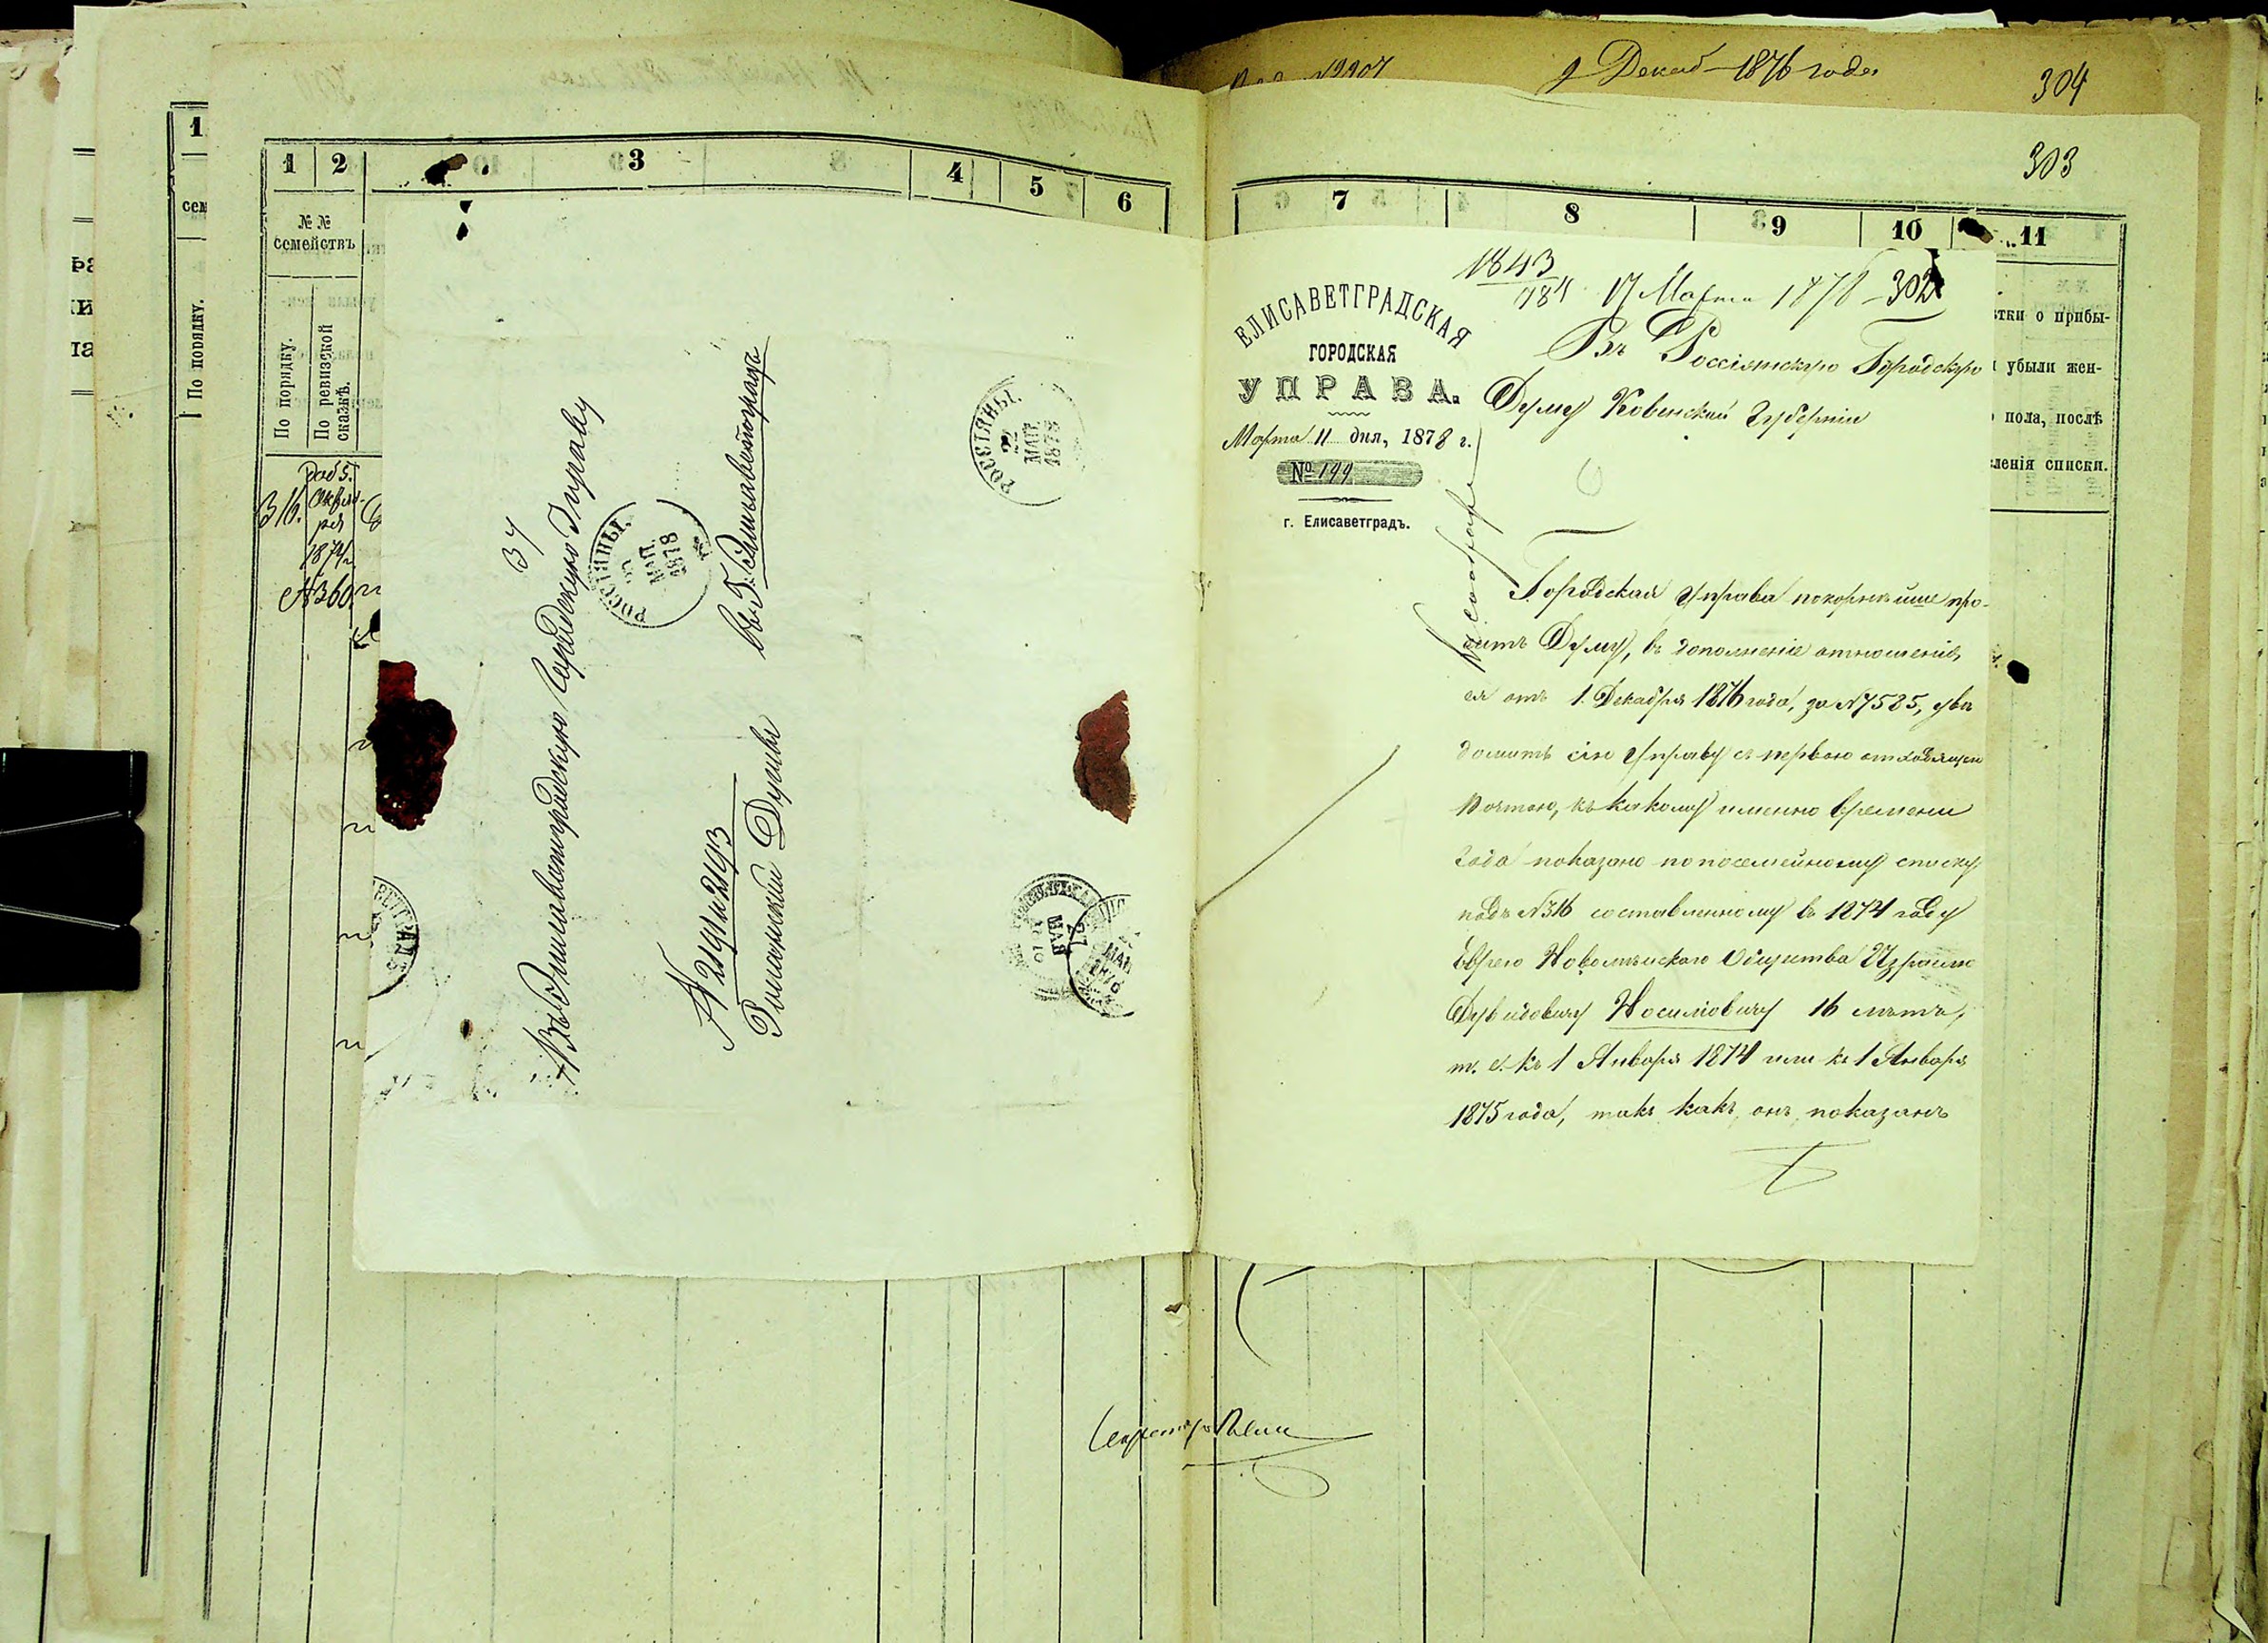 9 Декаб 1876 года
304
303
1
сем
По порядку.
1 2 3 4 5 6
№ №
семействъ
По порядку.
По ревизской
сказкѣ.
316.
раб 5.
Октяб-
ря
1874 г.
№ 360
37
Въ Елисаветградскую Городскую Управу
въ Г. Елисаветградѣ
№ 2191 и 2193
Россіянской Думы
РОССІЯНЫ.
МАР.
1878
РОССІЯНЫ.
22
МАР.
1878
27
МАР.
7 8 9 10 11
тки о прибы-
и убыли жен-
пола, послѣ
ленія списки.
1843
784
17 Марта 1878
302
ЕЛИСАВЕТГРАДСКАЯ
ГОРОДСКАЯ
УПРАВА.
Марта 11 дня, 1878 г.
№ 199
г. Елисаветградъ.
Въ Россіянскую Городскую
Думу Ковенской Губерніи
Городская Управа покорнѣйше про-
ситъ Думу, въ дополненіе отношенія,
ея отъ 1 Декабря 1876 года, за № 7585, увѣ
домить сію Управу съ первою отходящею
почтою, къ какому именно времени
года показано по посемейному списку
подъ № 316 составленному въ 1874 году
Еврею Новомѣйскаго Общества Израилю
Дувидовичу Носиловичу 16 лѣтъ,
т. е. къ 1 Января 1874 или къ 1 Января
1875 года, такъ какъ онъ показанъ
Секретарь